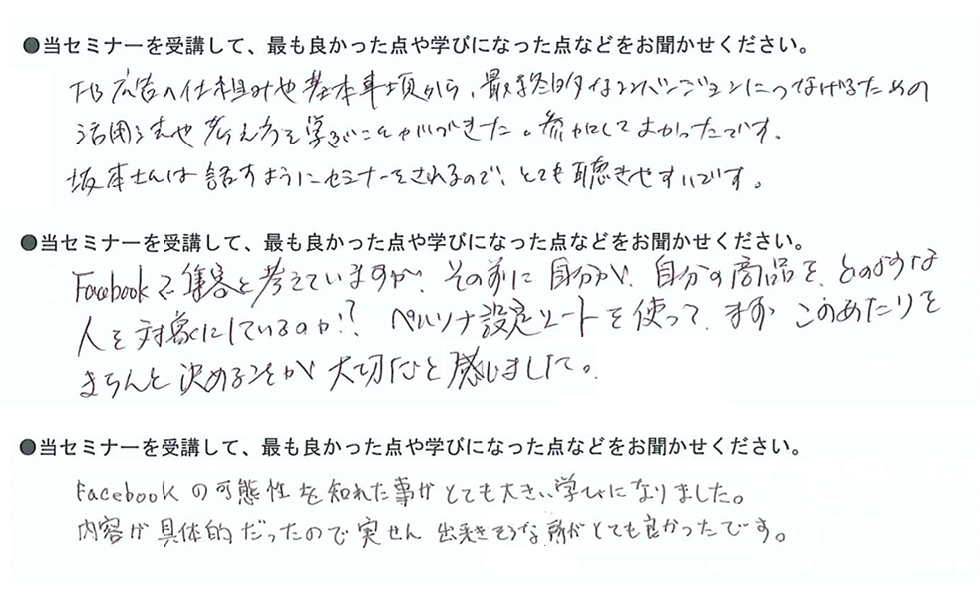 ●当セミナーを受講して、最も良かった点や学びになった点などをお聞かせください。
FB広告の仕組みや基本事項から、最終的なコンバージョンにつなげるための
活用法や考え方を学ぶことができました。参加してよかったです。
坂本さんは話すようにセミナーをされるので、とても聴きやすいです。
●当セミナーを受講して、最も良かった点や学びになった点などをお聞かせください。
Facebookで集客と考えていますが、その前に自分が、自分の商品を、どのような
人を対象にしているのか!?、ペルソナ設定シートを使って、まず このあたりを
きちんと決めることが大切だと感じました。
●当セミナーを受講して、最も良かった点や学びになった点などをお聞かせください。
Facebookの可能性を知れた事がとても大きい学びになりました。
内容が具体的だったので実せん出来そうな所がとても良かったです。